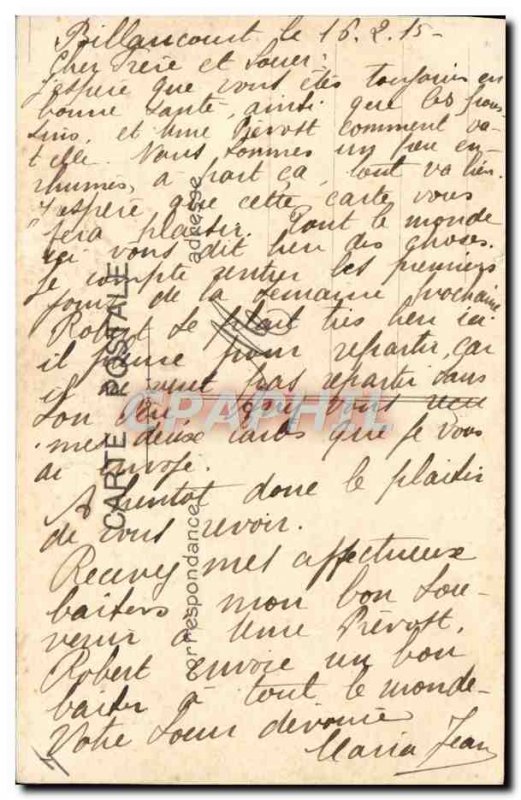 Billancourt le 16.2.15-
Cher Frère et Soeur,
J'espère que vous êtes toujours en
bonne santé, ainsi que les
et Mme Prévost comment va-
t-elle. Nous sommes un peu en-
rhumés, à part ça, tout va bien.
J'espère que cette carte vous
fera plaisir. Tout le monde
ici vous dit bien des choses.
Je compte rentrer les premiers
jours de la semaine prochaine
Robert se plait très bien ici
il pour repartir, car
il ne veut pas repartir sans
son vous
mes deux cartes que je vous
ai envoyé.
A bientot donc le plaisir
de vous revoir.
Recevez mes affectueux
baisers mon bon sou-
venir à Mme Prévost.
Robert envoie un bon
baiser à tout le monde-
Votre Soeur dévouée
Maria Jean
CARTE POSTALE
adresse
correspondance
CPAPHIL